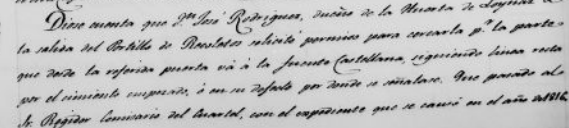 Diose cuenta que Dn José Rodriguez, dueño de la Huerta de Loynaz à
la salida del Portillo de Recoletos solicitó permiso para cercarla pr. la parte
que desde la referida puerta vá á la fuente Castellana, siguiendo linea recta
por el cimiento empezado, ó en su defecto por donde se señalase. Que pasado al
Sr. Regidor Comisario del Cuartel, con el expediente que se causó en el año de 1816,